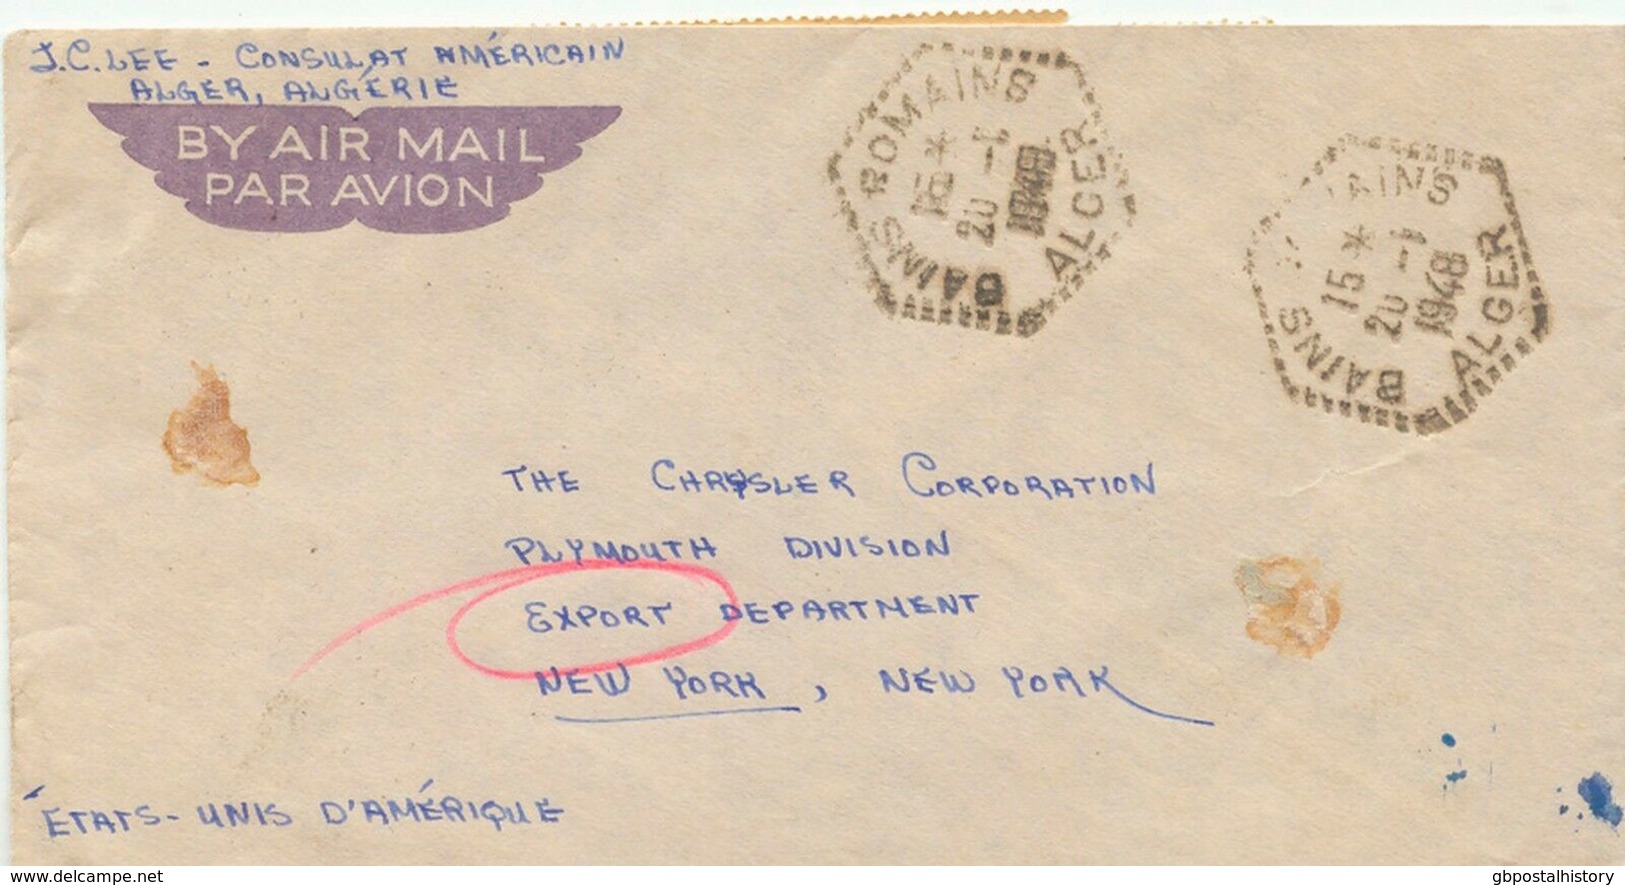 J.C. LEE - CONSULAT AMÉRICAIN
ALGER, ALGÉRIE
BY AIR MAIL
PAR AVION
BAINS ROMAINS
15 *
20 -1
1948
ALGER
BAINS AINS
15 *
20 -1
1948
ALGER
THE CHRYSLER CORPORATION
PLYMOUTH DIVISION
EXPORT DEPARTMENT
NEW YORK, NEW YORK
ÉTATS-UNIS D'AMÉRIQUE
www.delcampe.net
gbpostalhistory